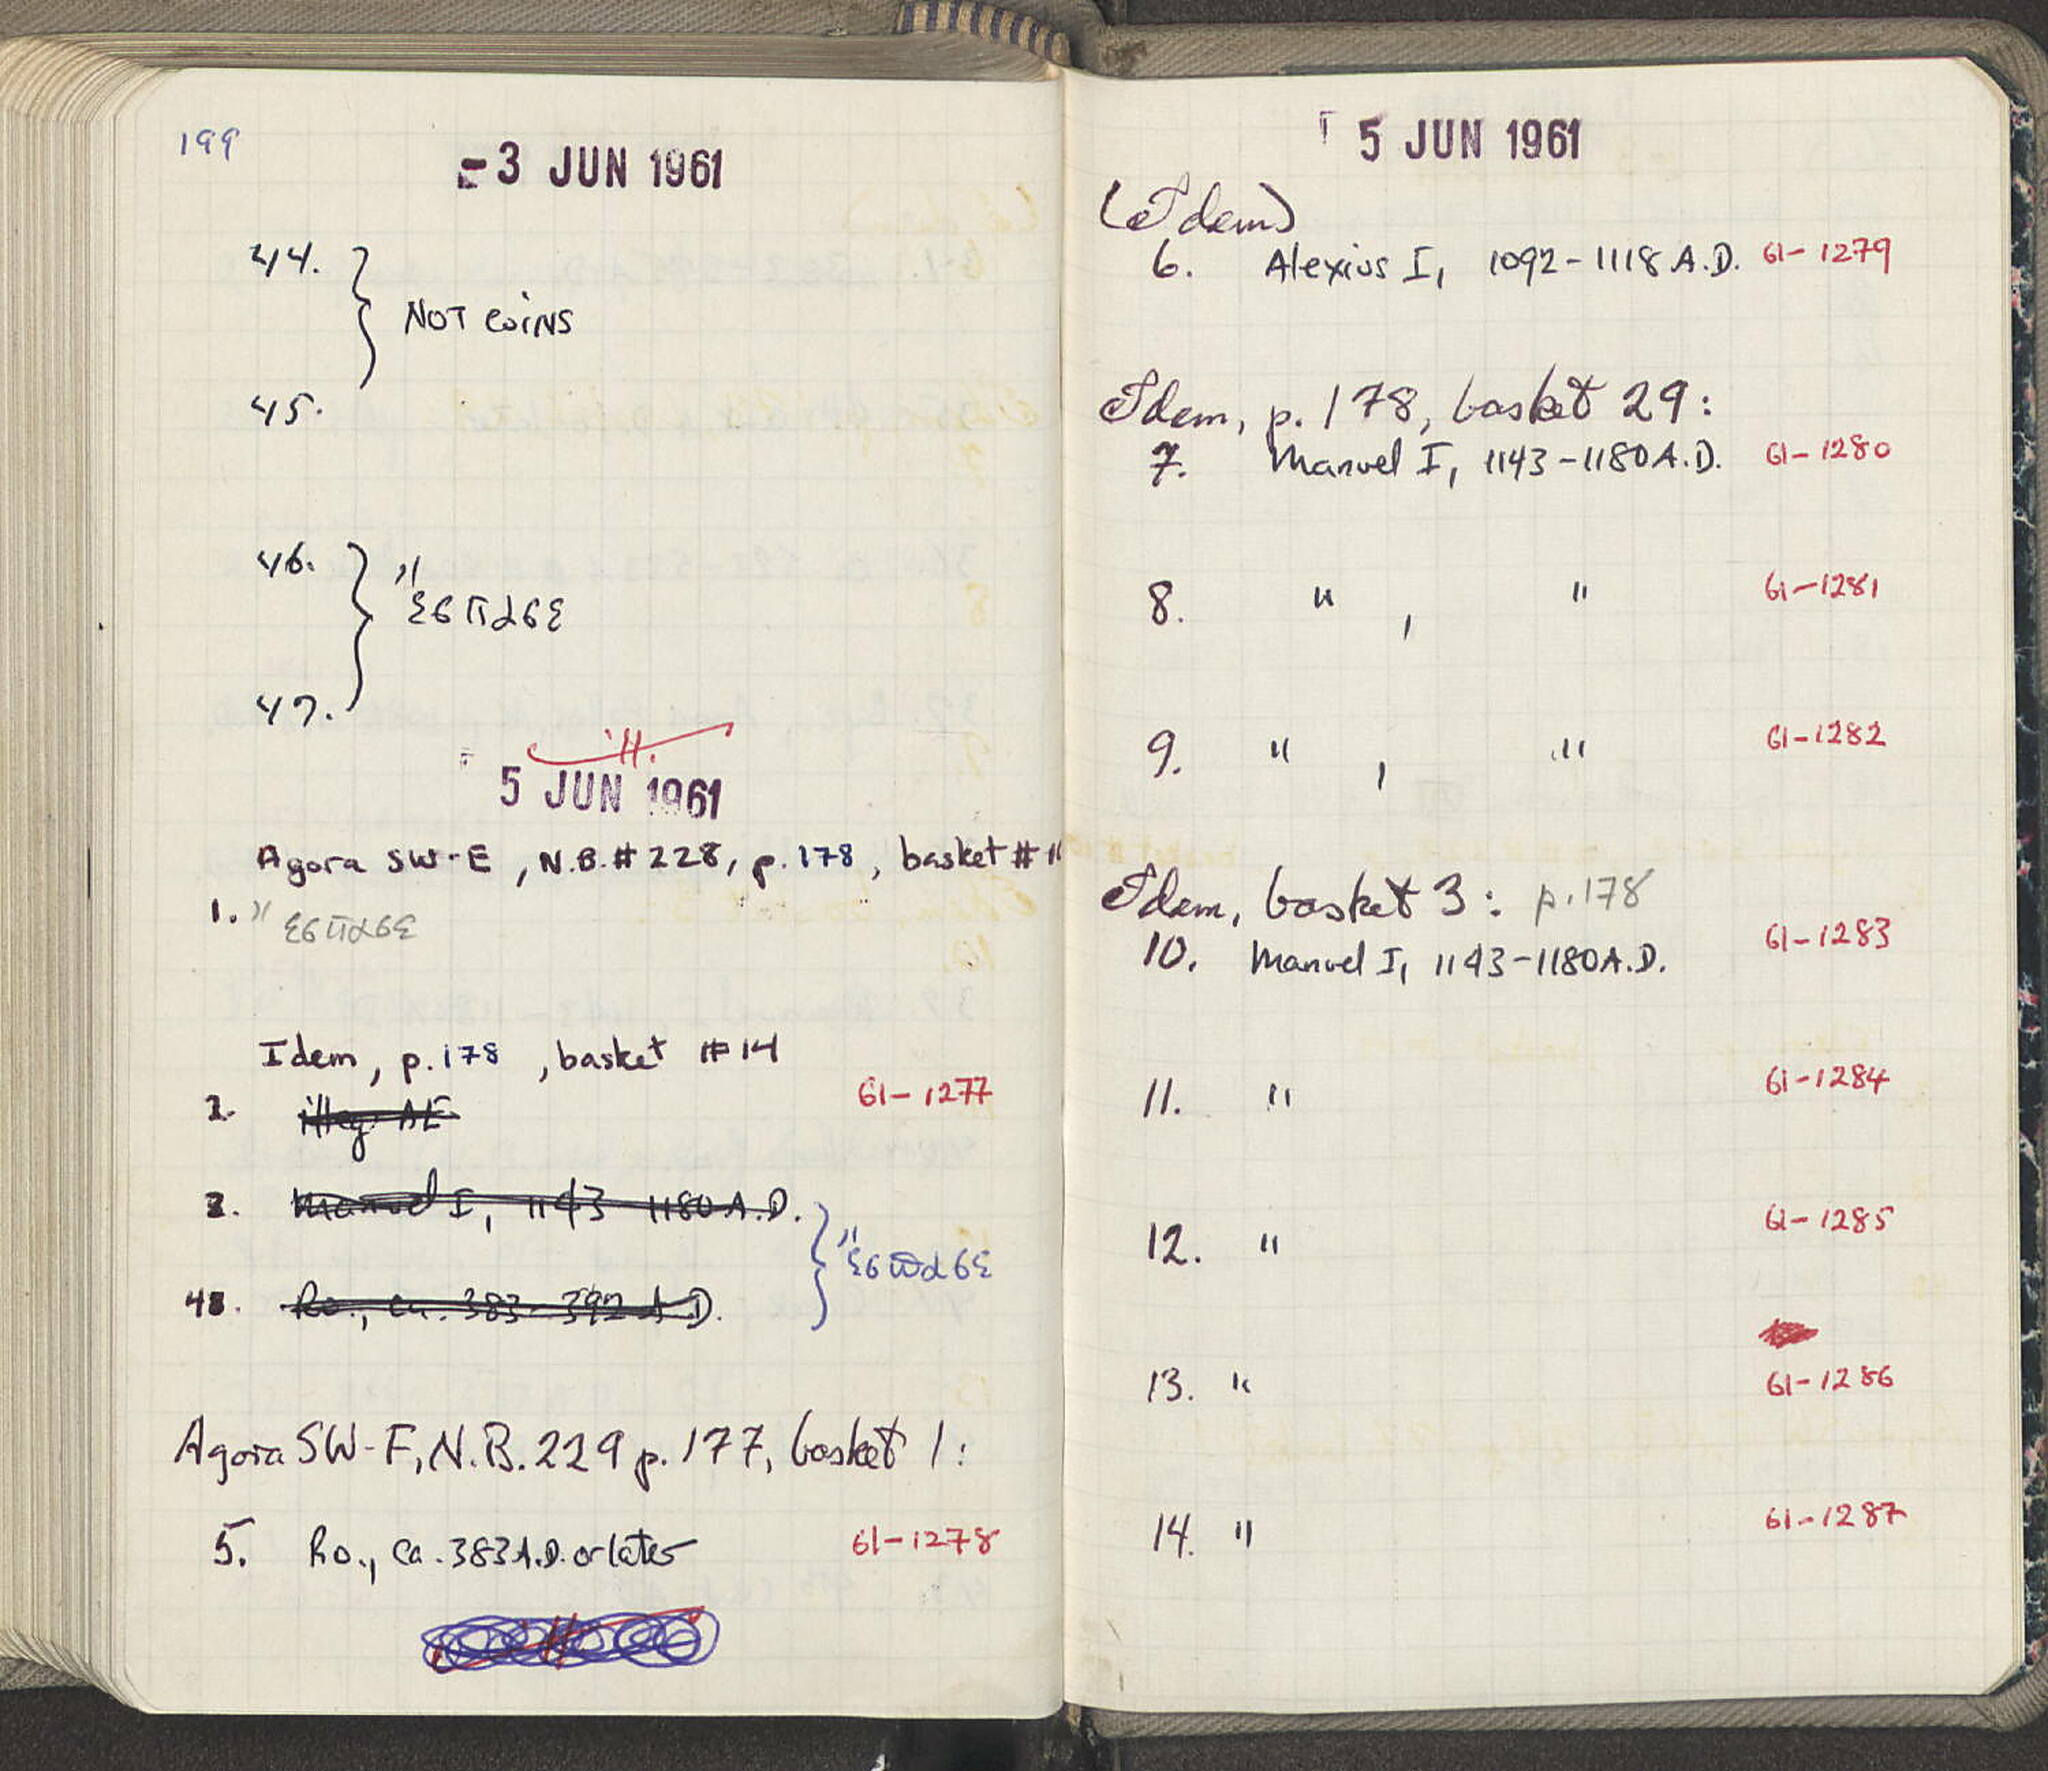 199
-3 JUN 1961
44.
NOT COINS
45.
46.
"
ξϭπαϭξ
47.
".
5 JUN 1961
Agora SW-E, N.B.#228, p.178, basket #11
1. "
ξϭπαϭξ
Idem, p.178, basket #14
2. illeg. AE 61-1277
3. Manuel I, 1143-1180 A.D.
"
ξϭπαϭξ
4. Ro., ca. 383-392 A.D.
Agora SW-F, N.B. 229 p. 177, basket 1:
5. Ro., ca. 383 A.D. or later 61-1278
5 JUN 1961
(Idem)
6. Alexius I, 1092-1118 A.D. 61-1279
Idem, p. 178, basket 29:
7. Manuel I, 1143-1180 A.D. 61-1280
8. " , " 61-1281
9. " , " 61-1282
Idem, basket 3: p.178
10. Manuel I, 1143-1180 A.D. 61-1283
11. " 61-1284
12. " 61-1285
13. " 61-1286
14. " 61-1287